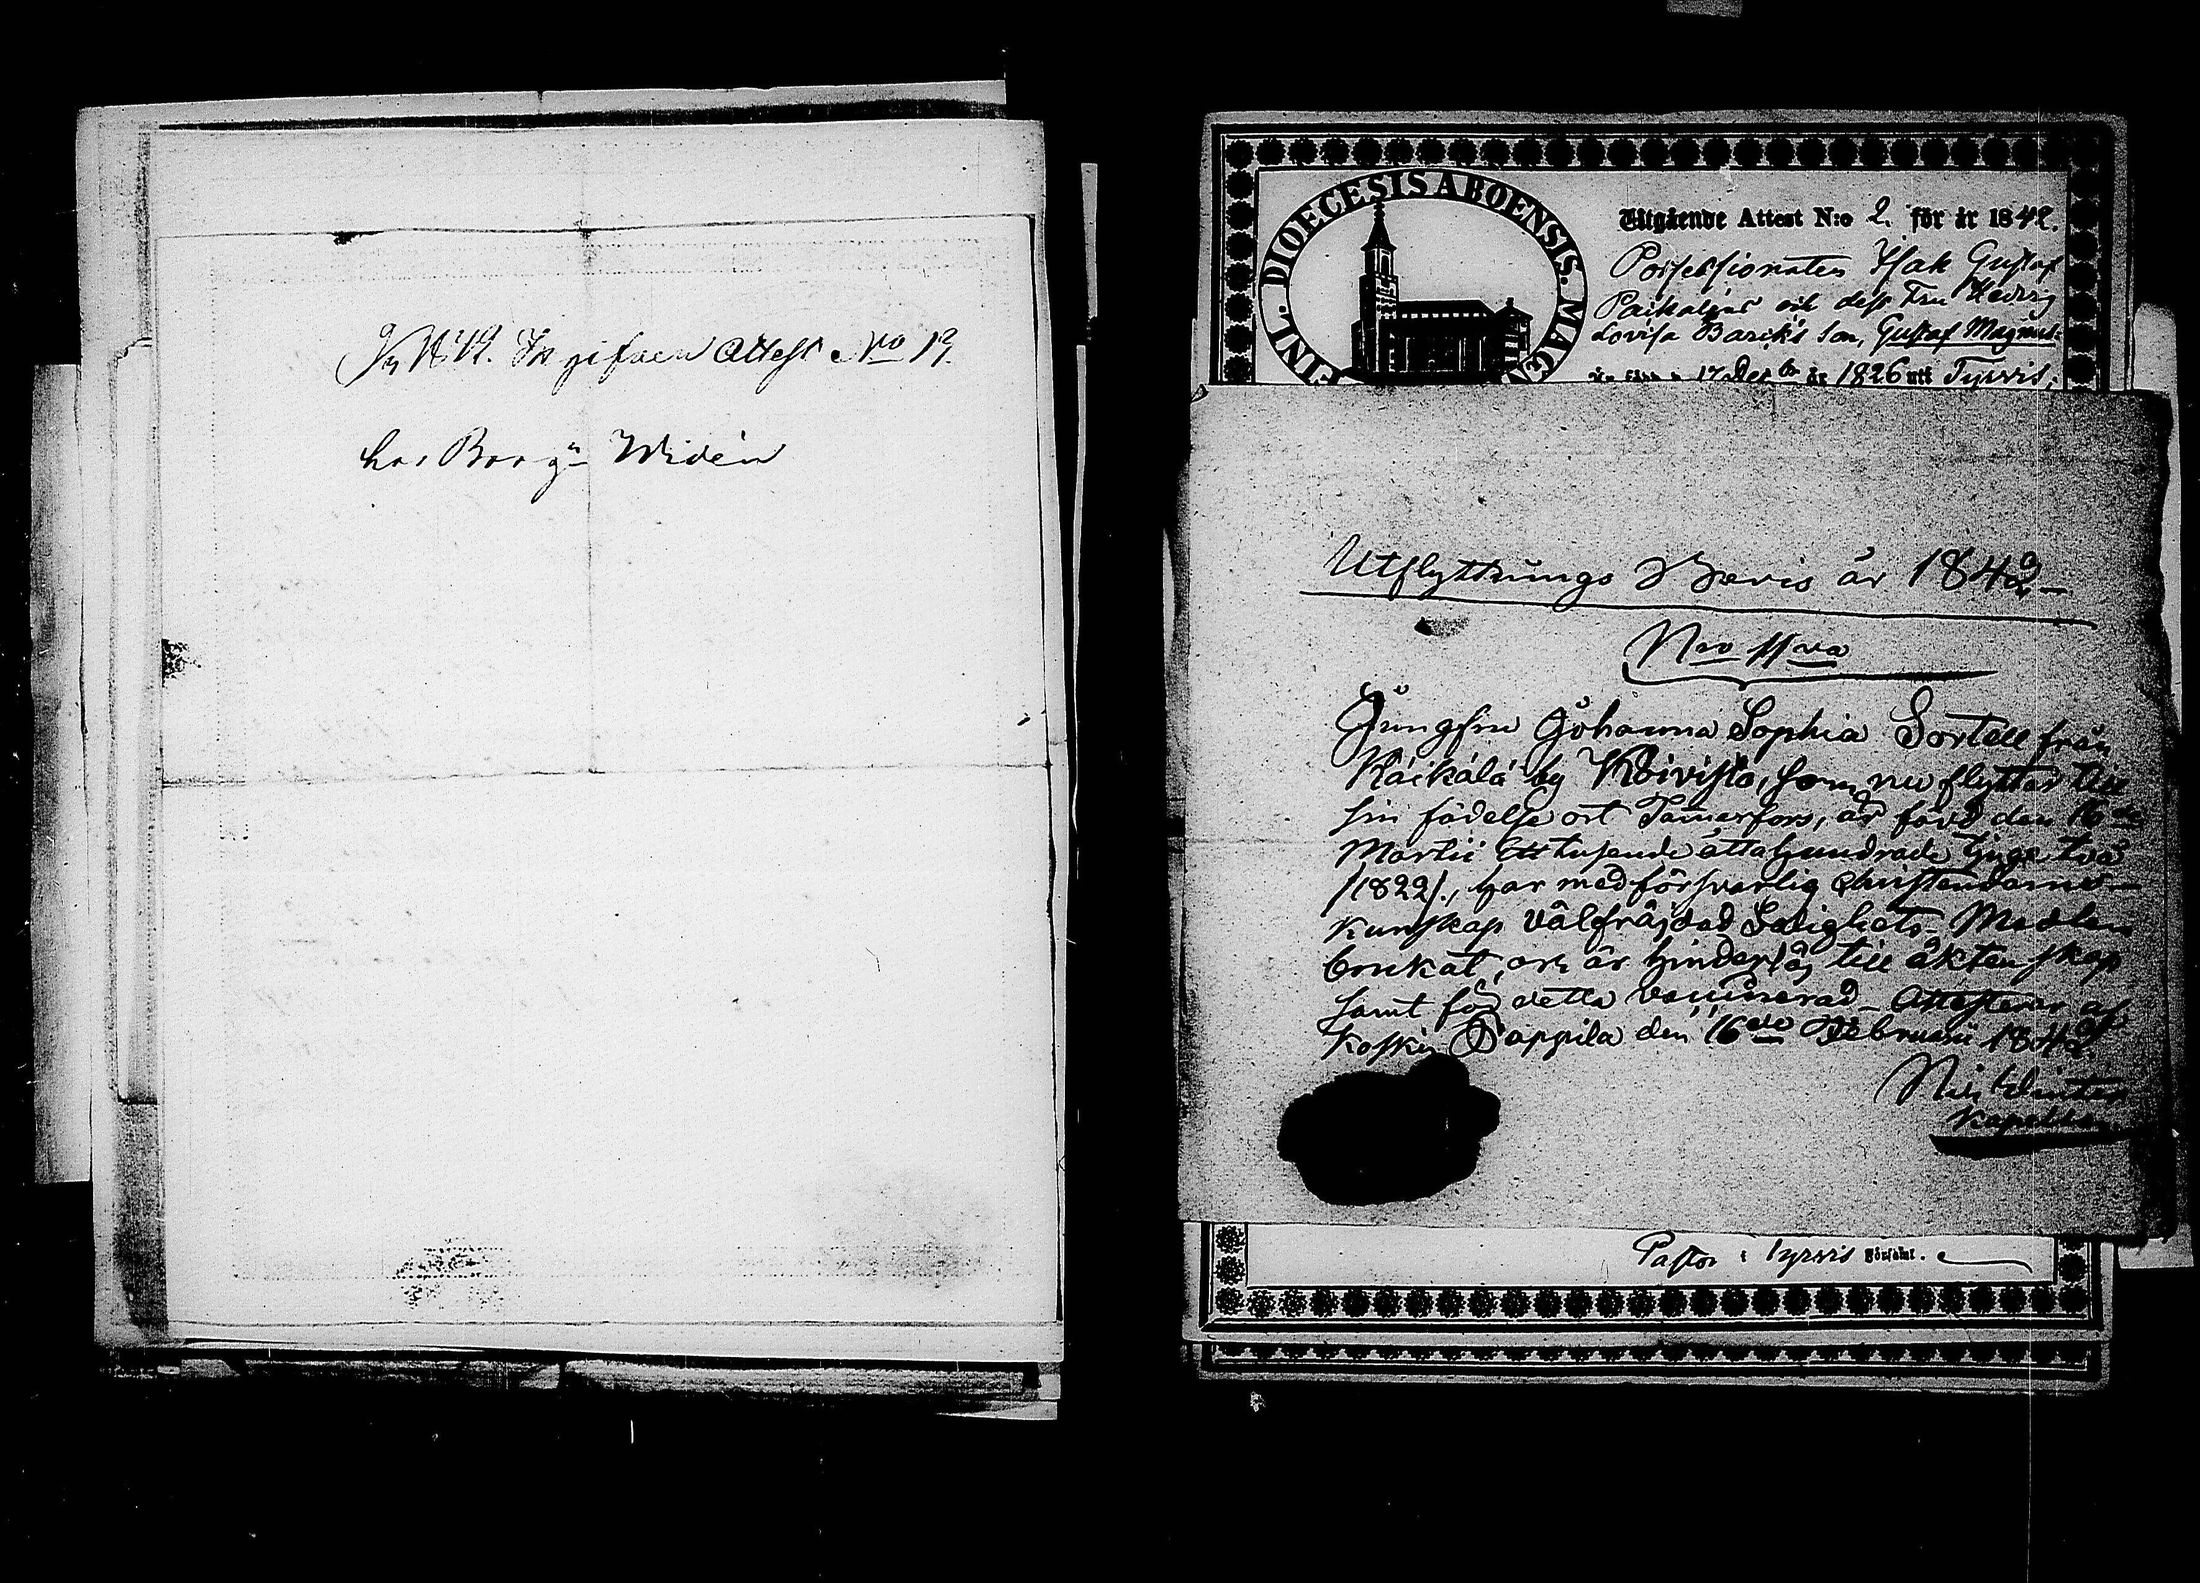 Ingifven Attest No 19.
hos Borg:n Widén
FINL. DIOECESIS ABOENSIS. MAGN
Utgående Attest N:o 2. för år 1842.
Possessionaten Isak Gustaf
och dess Fru Hedvig
Lovisa Bariks son, Gustaf Magnus
17 Dec:br år 1826 uti Tyrvis,
Utflyttnings Bevis år 1842
Nro 11va
Jungfru Johanna Sophia Sortell från
Käikälä by Koivisto, som nu flyttar till
sin födelse ort Tammerfors, är född den 16de
Martii Ett tusende åttahundrade tjuge två
/1822/., har med försvarlig Christendoms-
kunskap välfräjdad Salighets Medlen
brukat, och är hinderlös till äktenskap
samt för detta vaccinerad. Attesterar af
Koskis Pappila den 16de Februarii 1842
Nils
Kapellan
Pastor i Tyrvis Församl.